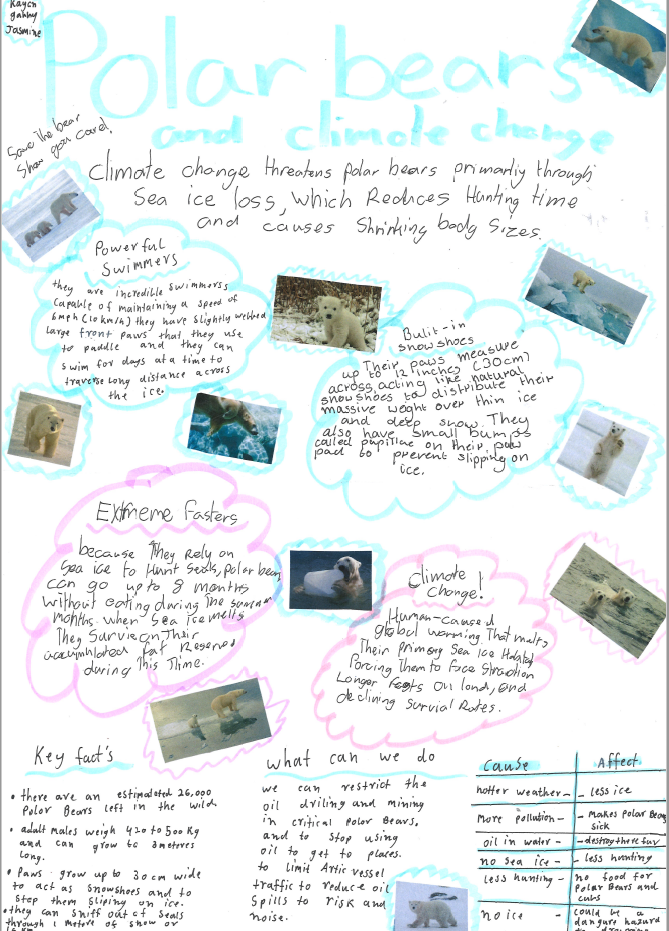 Kaycn
gahny
Jasmine
Polar bears
and climate change
Save the bear
Show you card!
Climate change threatens polar bears primarily through
Sea ice loss, which Reduces Hunting time
and causes Shrinking body Sizes.
Powerful
Swimmers
they are incredible Swimmerss
Capable of maintaining a speed of
6mph (10km/h) they have slightly webbed
large front paws that they use
to paddle and they can
swim for days at a time to
traverse long distance across
the ice.
Bulit-in
snowshoes
Their paws measure
up to 12 inches (30cm)
across, acting like natural
snowshoes to distribute their
massive weght over thin ice
and deep snow. They
also have small bumps
called pupillae on their paw
pad to prevent slipping on
ice.
Extreme Fasters
because They Rely on
Sea ice to Hunt Seals, polar bears
can go up to 8 months
without eating during The summer
months. when Sea ice melts
They Survive on Their
accumhlated fat Reserved
during This Time.
Climate
change!
Human-caused
global warming That melts
Their primory Sea Ice Habitat
Forcing Them to Face Starvation
Longer Fasts on land, and
declining Survial Rates.
Key fact's
• there are an estimatated 26,000
Polar Bears left in the wild.
• adalt males weigh 420 to 500 Kg
and can grow to 3 meteres
long.
• Paws grow up to 30cm wide
to act as snowshoes and to
Stop them Sliping on ice.
• they can sniff out of seals
through 1 metere of snow or
what can we do
we can restrict the
oil driling and mining
in critical Polar Bears.
and to stop using
oil to get to places.
to limit Artic vessel
traffic to reduce oil
Spills to risk and
noise.
Cause Affect
hotter weather - - less ice
More pollution - - makes Polar Bears
sick
oil in water - - destroy there fur
no sea ice - - less hunting
less hunting - no food for
Polar Bears and
cubs
no ice - could be a
dangure hazard